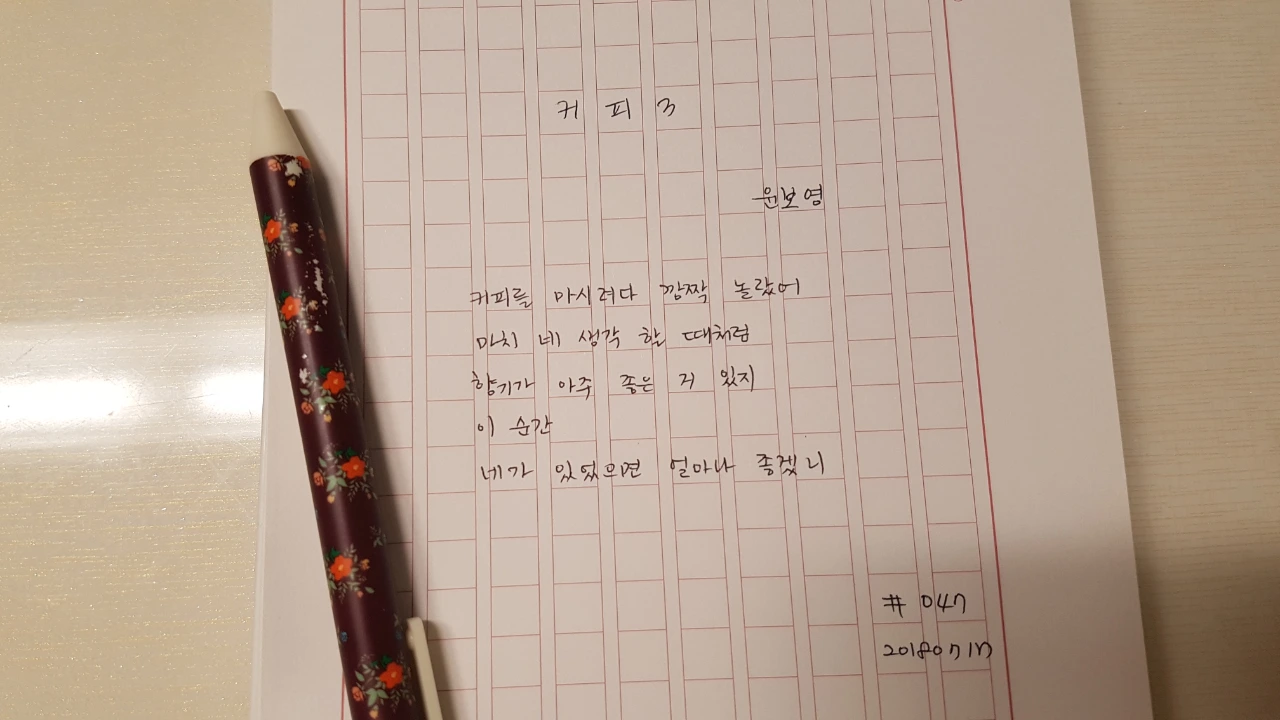 커피 3
윤보영
커피를 마시려다 깜짝 놀랐어
마치 네 생각 할 때처럼
향기가 아주 좋은 거 있지
이 순간
네가 있었으면 얼마나 좋겠니
# 047
20180717